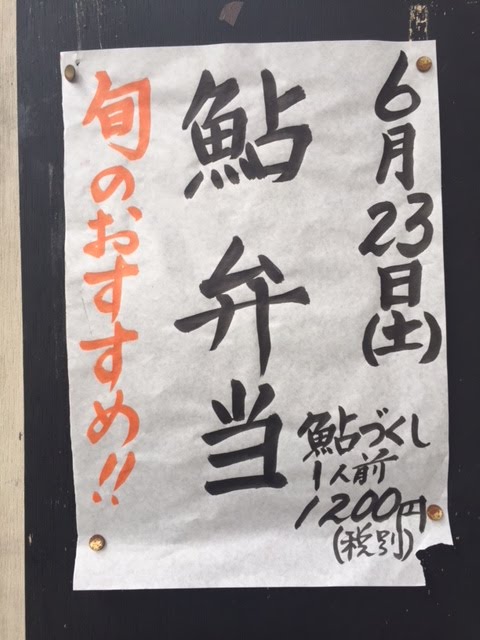 6月23日(土)
鮎弁当
鮎づくし
1人前
1200円
(税別)
旬のおすすめ!!